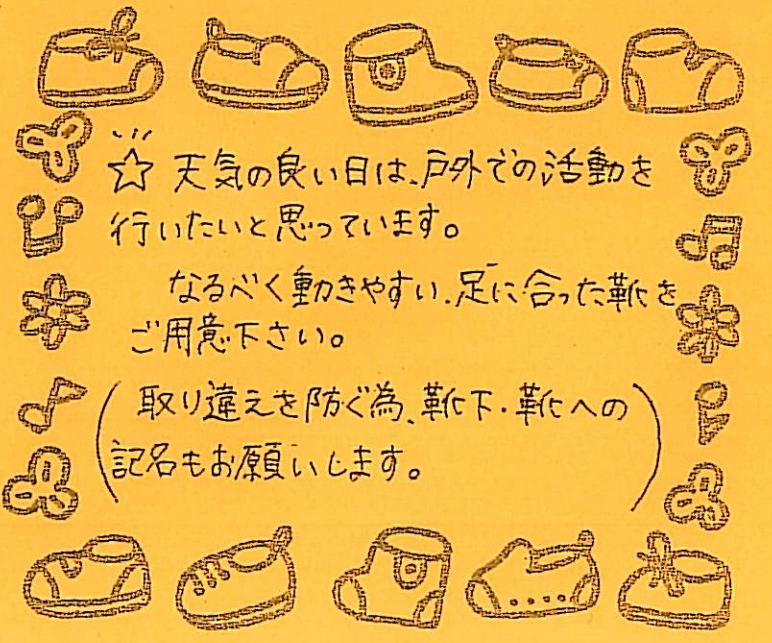 ☆ 天気の良い日は、戸外での活動を
行いたいと思っています。
なるべく動きやすい、足に合った靴を
ご用意下さい。
(取り違えを防ぐ為、靴下・靴への
記名もお願いします。)